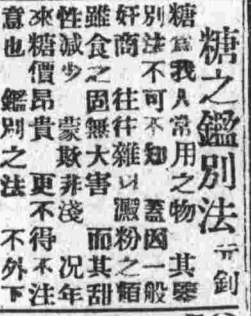 糖之鑑別法 元釗
糖爲我人常用之物 其鑒
別法不可不知 蓋因一般
奸商 往往雜以澱粉之類
雖食之固無大害 而其甜
性減少 蒙欺非淺 况年
來糖價昂貴 更不得不注
意也 鑑別之法 不外下